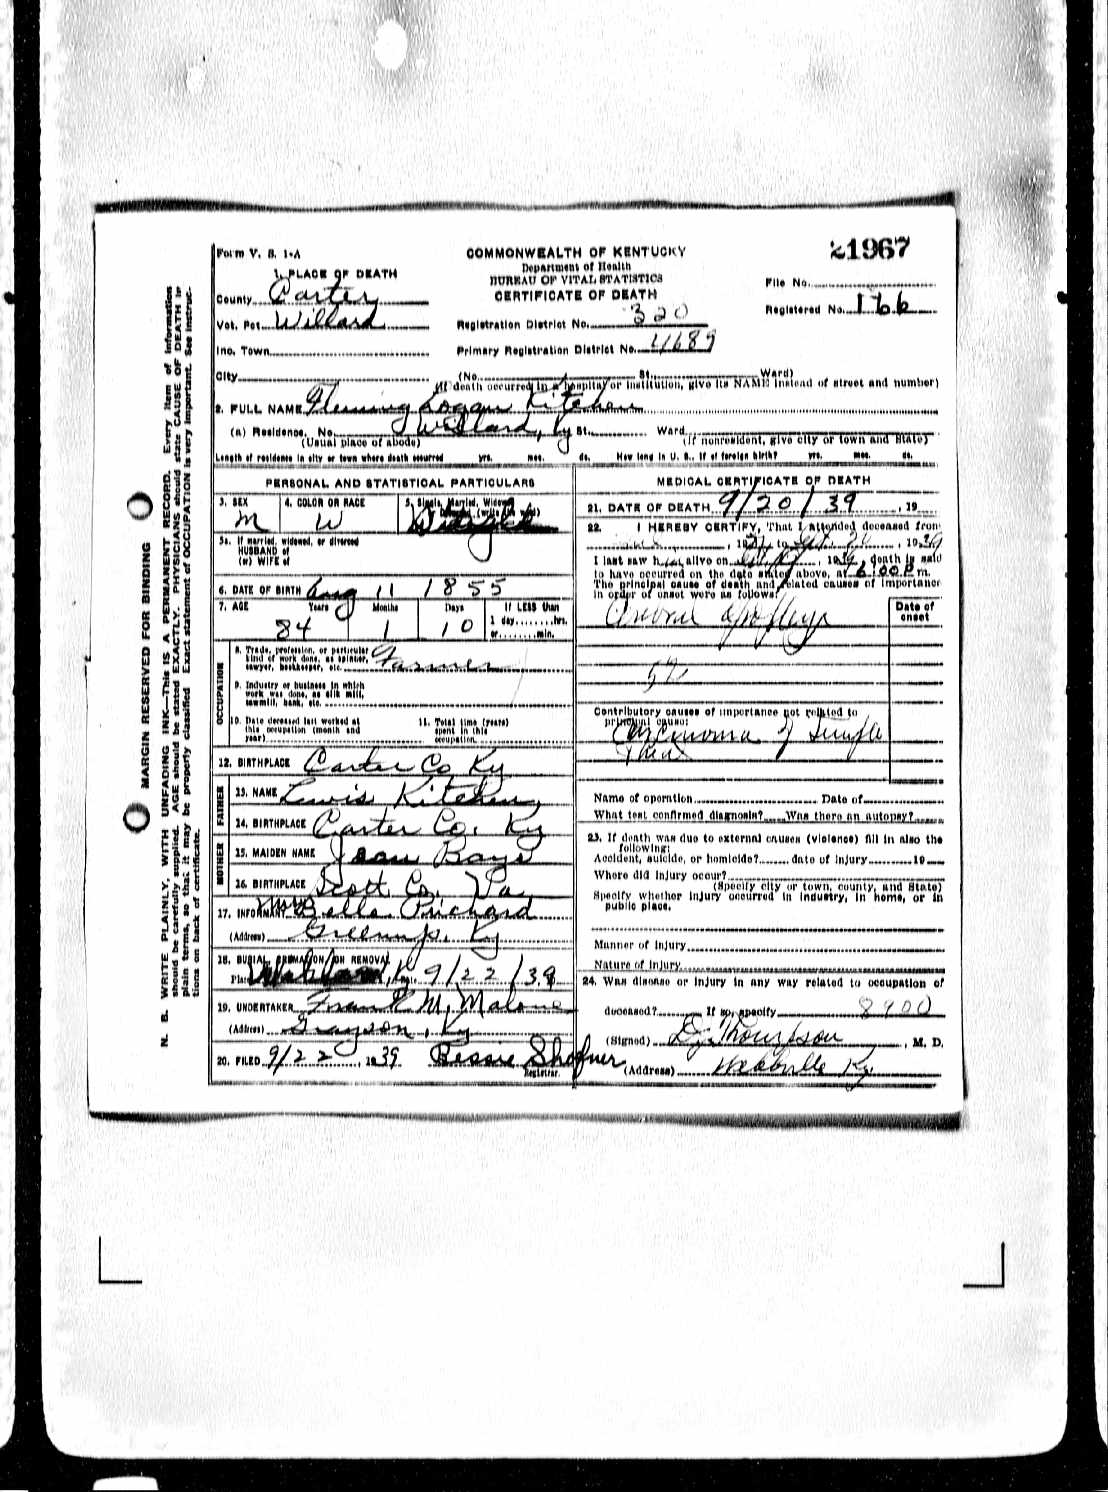 Form V. S. 1-A
COMMONWEALTH OF KENTUCKY
Department of Health
BUREAU OF VITAL STATISTICS
CERTIFICATE OF DEATH
21967
File No.
Registered No. 166
1. PLACE OF DEATH
County Carter
Vot. Pct. Willard
Inc. Town
City
Registration District No. 320
Primary Registration District No. 4689
(No. St. Ward)
(If death occurred in a hospital or institution, give its NAME instead of street and number)
2. FULL NAME Fleming Logan Kitchen
(a) Residence, No. Willard, Ky St. Ward
(Usual place of abode) (If nonresident, give city or town and State)
Length of residence in city or town where death occurred yrs. mos. ds. How long in U. S., if of foreign birth? yrs. mos. ds.
PERSONAL AND STATISTICAL PARTICULARS
3. SEX M
4. COLOR OR RACE W
5. Single, Married, Widowed
5a. If married, widowed, or divorced
HUSBAND of
(or) WIFE of
6. DATE OF BIRTH Aug 11 1855
7. AGE Years Months Days If LESS than
1 day hrs.
84 1 10 or min.
OCCUPATION
8. Trade, profession, or particular
kind of work done, as spinner,
sawyer, bookkeeper, etc. Farmer
9. Industry or business in which
work was done, as silk mill,
sawmill, bank, etc.
10. Date deceased last worked at
this occupation (month and
year)
11. Total time (years)
spent in this
occupation
12. BIRTHPLACE Carter Co Ky
FATHER
13. NAME Lewis Kitchen
14. BIRTHPLACE Carter Co. Ky
MOTHER
15. MAIDEN NAME Jean Bays
16. BIRTHPLACE Scott Co. Va
17. INFORMANT Mrs Belle Prichard
(Address) Greenup, Ky
18. BURIAL, CREMATION OR REMOVAL
Place Ky. 9/22/39
19. UNDERTAKER Frank M. Malone
(Address) Grayson, Ky
20. FILED 9/22, 1939 Bessie Shofner
Registrar.
MEDICAL CERTIFICATE OF DEATH
21. DATE OF DEATH 9/20/39, 19
22. I HEREBY CERTIFY, That I attended deceased from
, 19 to Sept. 20, 1939
I last saw him alive on , 1939, death is said
to have occurred on the date stated above, at 6:00 P m.
The principal cause of death and related causes of importance
in order of onset were as follows:
Date of
onset
Contributory causes of importance not related to
principal cause:
Carcinoma of Temple
Name of operation Date of
What test confirmed diagnosis? Was there an autopsy?
23. If death was due to external causes (violence) fill in also the
following:
Accident, suicide, or homicide? date of injury 19
Where did injury occur?
(Specify city or town, county, and State)
Specify whether injury occurred in industry, in home, or in
public place.
Manner of Injury
Nature of Injury
24. Was disease or injury in any way related to occupation of
deceased? If so, specify 8900
(Signed) Thompson, M. D.
(Address) Webbville Ky
MARGIN RESERVED FOR BINDING
N. B. WRITE PLAINLY, WITH UNFADING INK—This IS A PERMANENT RECORD. Every item of information
should be carefully supplied. AGE should be stated EXACTLY. PHYSICIANS should state CAUSE OF DEATH in
plain terms, so that it may be properly classified Exact statement of OCCUPATION is very important. See instruc-
tions on back of certificate.